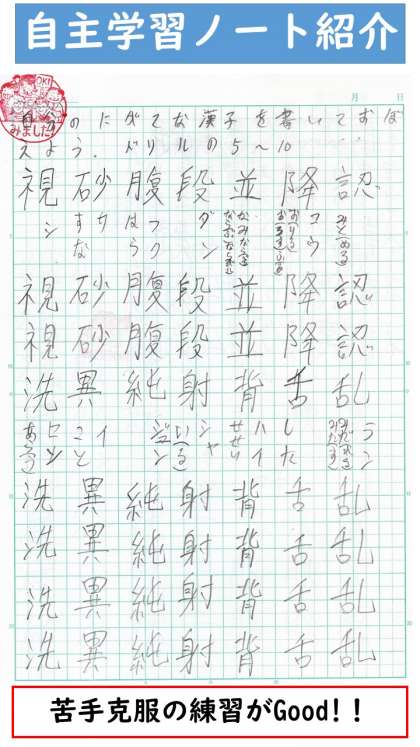 自主学習ノート紹介
OK!
みました!
月 日
自分のにがてな漢字を書いておぼ
えよう。ドリルの5〜10
視 砂 腹 段 並 降 認
シ
サ すな
フク はら
ダン
コウ
みとめる
視 砂 腹 段 並 降 認
視 砂 腹 段 並 降 認
洗 異 純 射 背 舌 乱
イ こと
ジュン
シャ いる
ハイ
した
ラン みだれる みだす
洗 異 純 射 背 舌 乱
洗 異 純 射 背 舌 乱
洗 異 純 射 背 舌 乱
洗 異 純 射 背 舌 乱
苦手克服の練習がGood!!